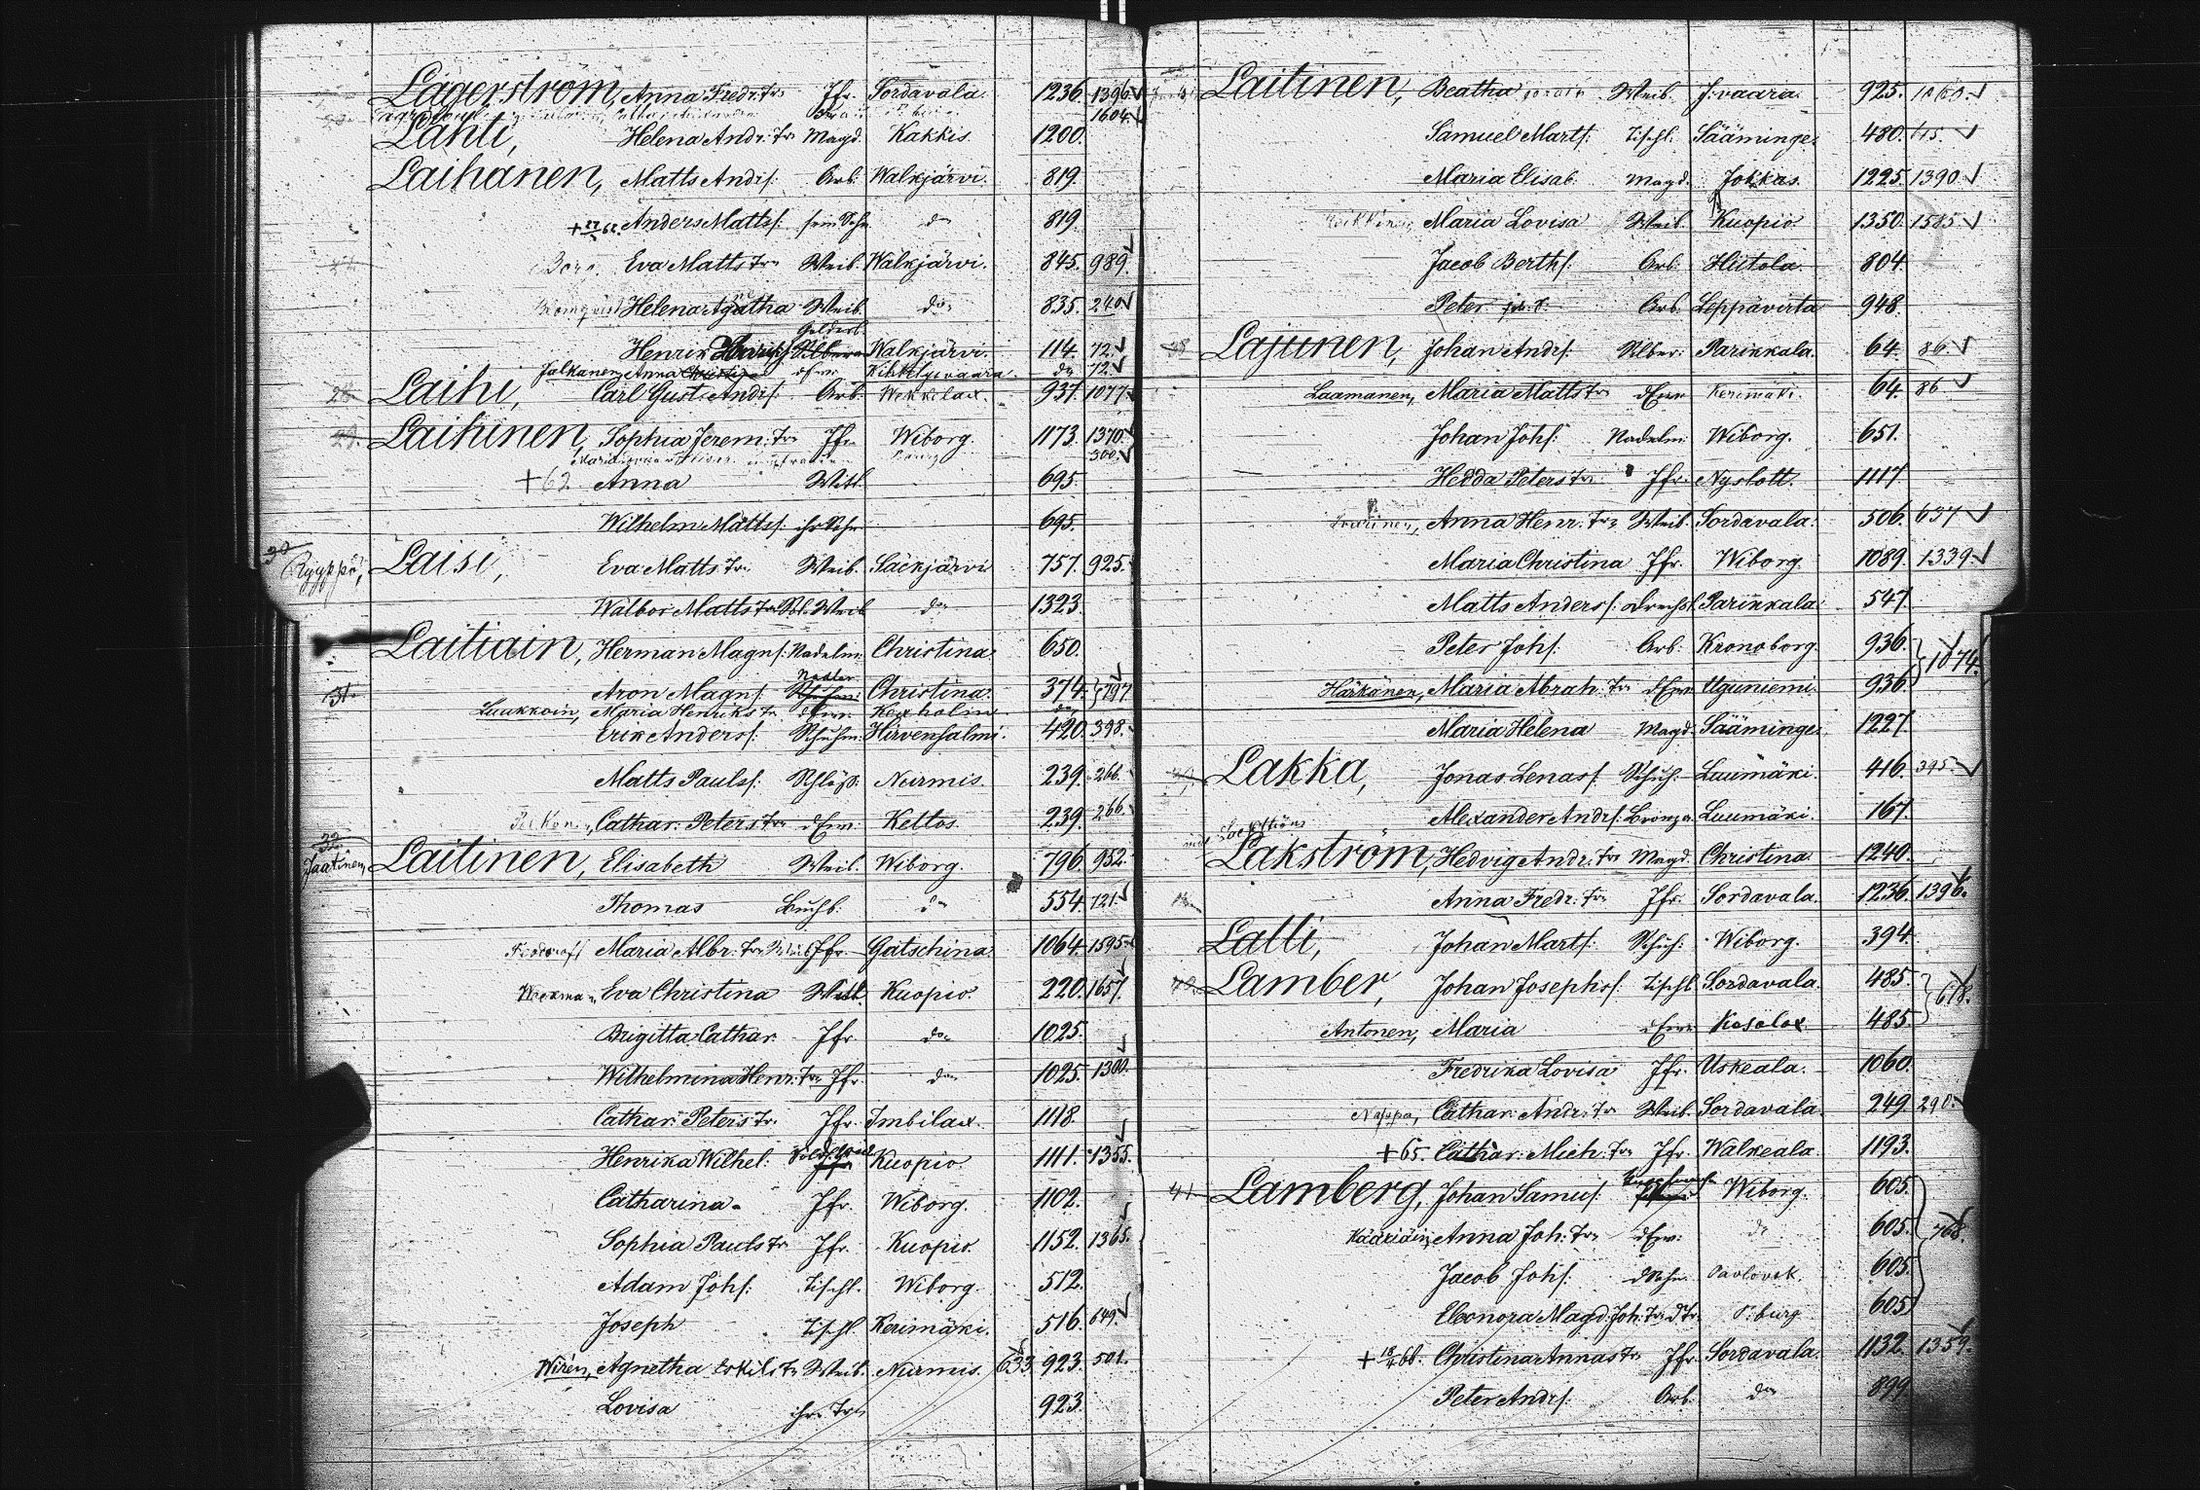 Lagerström, Anna Fredr: Tr: Jfr. Sordavala. 1236. 1396.
1604.
Lahti, Helena Andr: Tr Magd. Kakkis. 1200.
Laihanen, Matts Andr/: Arb. Walkjärvi. 819.
Anders Matts/: sein Sohn do 819.
Eva Matts Tr: Weib. Walkjärvi. 845. 989.
Helena Agatha Weib. do 835. 240.
Henrik Walkjärvi. 114. 72.
Jalkanen, Anna dErw: do 72.
Laihi, Carl Gust: Andr/: Arb. Wekkelax. 937. 1077.
Laihinen, Sophia Jerem: Tr: Jfr. Wiborg. 1173. 1370.
300.
+62. Anna Witt. 695.
Wilhelm Matts/: ihr Sohn 695.
Ryyppö, Laisi, Eva Matts Tr: Weib. Säckjärvi. 757. 925.
Walbor Matts Tr: Sol. Weib do 1323.
Laitiain, Herman Magn/: Nadelm. Christina. 650.
31. Aron Magn/: Nadler Christina. 374. 797
Luukkoin, Maria Henriks Tr. dErw: Kexholm do
Erik Anders/: Schuhm. Hirvensalmi. 420. 398.
Matts Pauls/: Schloß. Nurmis. 239. 266.
Cathar: Peters Tr: dErw: Keltos. 239. 266.
32. Jaatinen, Laitinen, Elisabeth Weib. Wiborg. 796. 952.
Thomas Buchb. do 554. 721.
Maria Albr: Tr: Jfr. Gatschina. 1064. 1595.
Weckman, Eva Christina Witt. Kuopio. 220. 1657.
Brigitta Cathar. Jfr. do 1025.
Wilhelmina Henr: Tr: Jfr. do 1025. 1300.
Cathar: Peters Tr. Jfr. Imbilax. 1118.
Henrika Wilhel: Kuopio. 1111. 1355.
Catharina Jfr. Wiborg. 1102.
Sophia Pauls Tr Jfr. Kuopio. 1152. 1365.
Adam Joh/: Tischl. Wiborg. 512.
Joseph Tischl. Kerimäki. 516. 649.
Wirén, Agnetha Eskils Tr Weib. Nurmis. 633. 923. 501.
Lovisa ihre Tr: 923.
Laitinen, Beatha Weib. J:vaara. 925. 1060.
Samuel Mart/: Tischl. Sääminge. 480. 615.
Maria Elisab. Magd. Jokkas. 1225. 1390.
Maria Lovisa Weib. Kuopio. 1350. 1585.
Jacob Berth/: Arb. Hiitola. 804.
Peter Arb. Leppävirta 948.
38 Lajunen, Johan Andr/: Silber: Parikkala. 64. 86.
Laamanen, Maria Matts Tr: dErw Kerimäki. 64. 86
Johan Joh/: Nadelm. Wiborg. 651.
Hedda Peters Tr: Jfr. Nyslott. 1117.
Anna Henr: Tr: Weib. Sordavala. 506. 637
Maria Christina Jfr. Wiborg. 1089. 1339
Matts Anders/: Drechsl. Parikkala. 547.
Peter Joh/: Arb. Kronoborg. 936. 1074.
Härkänen, Maria Abrah: Tr: dErw Uguniemi. 936.
Maria Helena Magd. Sääminge. 1227.
Lakka, Jonas Lenas/: Schuh: Luumäki. 416. 395.
Alexander Andr/: Bronza. Luumäki. 167.
Lakström, Hedvig Andr: Tr: Magd. Christina. 1240.
Anna Fredr: Tr: Jfr. Sordavala. 1236. 1396.
Lalli, Johan Mart/: Schuh: Wiborg. 394.
40. Lamber, Johan Josephs/: Tischl. Sordavala. 485. 618.
Antonen, Maria dErw: Kesälax. 485.
Fredrika Lovisa Jfr. Uskeala. 1060.
Nappa, Cathar: Andr: Tr Weib. Sordavala. 249. 290.
+65. Cathar: Mich: Tr: Jfr. Walkeala. 1193.
41. Lamberg, Johan Samu/: Wiborg. 605.
Kääriäin, Anna Joh: Tr: dErw: do 605. 768.
Jacob Joh/: dSohn. Pavlovsk. 605.
Eleonora Magd. Joh: Tr: dTr: P:burg 605.
Christina Annas Tr: Jfr. Sordavala. 1132. 1359.
Peter Andr/: Arb. do 899.